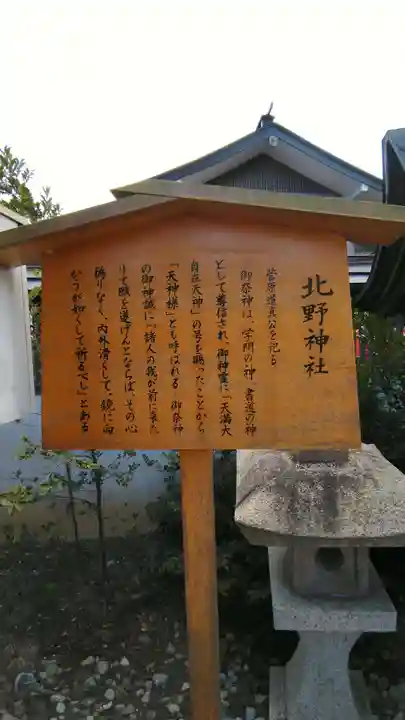 北野神社
菅原道真公を祀る
御祭神は、学問の神、書道の神
として尊信され、御神霊に「天満大
自在天神」の号を賜ったことから
「天神様」とも呼ばれる 御祭神
の御神誡に「諸人の我が前に来た
りて願を遂げんとならば、その心
偽りなく、内外清くして、鏡に向
かうが如くして祈るべし」とある